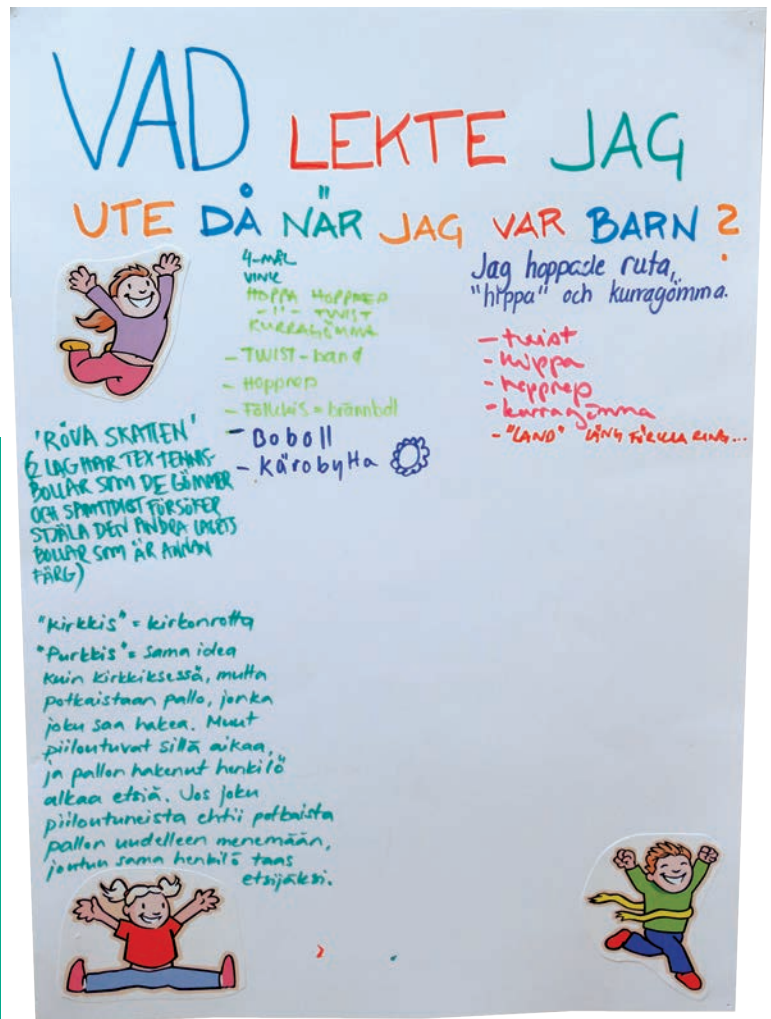 VAD LEKTE JAG
UTE DÅ NÄR JAG VAR BARN ?
4-MÅL
VINK
HOPPA HOPPREP
-"- TWIST
KURRAGÖMMA
- TWIST-band
- Hopprep
- = brännboll
- Boboll
- Kärobytta
Jag hoppade ruta,
"hippa" och kurragömma.
- twist
- hippa
- hopprep
- kurragömma
- "LAND" RING...
'RÖVA SKATTEN'
(2 LAG HAR TEX TENNIS-
BOLLAR SOM DE GÖMMER
OCH SAMTIDIGT FÖRSÖKER
STJÄLA DEN ANDRA LAGETS
BOLLAR SOM ÄR ANNAN
FÄRG)
"Kirkkis" = kirkonrotta
"Purkkis" = sama idea
kuin kirkkiksessä, mutta
potkaistaan pallo, jonka
joku saa hakea. Muut
piiloutuvat sillä aikaa,
ja pallon hakenut henkilö
alkaa etsiä. Jos joku
piiloutuneista ehtii potkaista
pallon uudelleen menemään,
joutuu sama henkilö taas
etsijäksi.